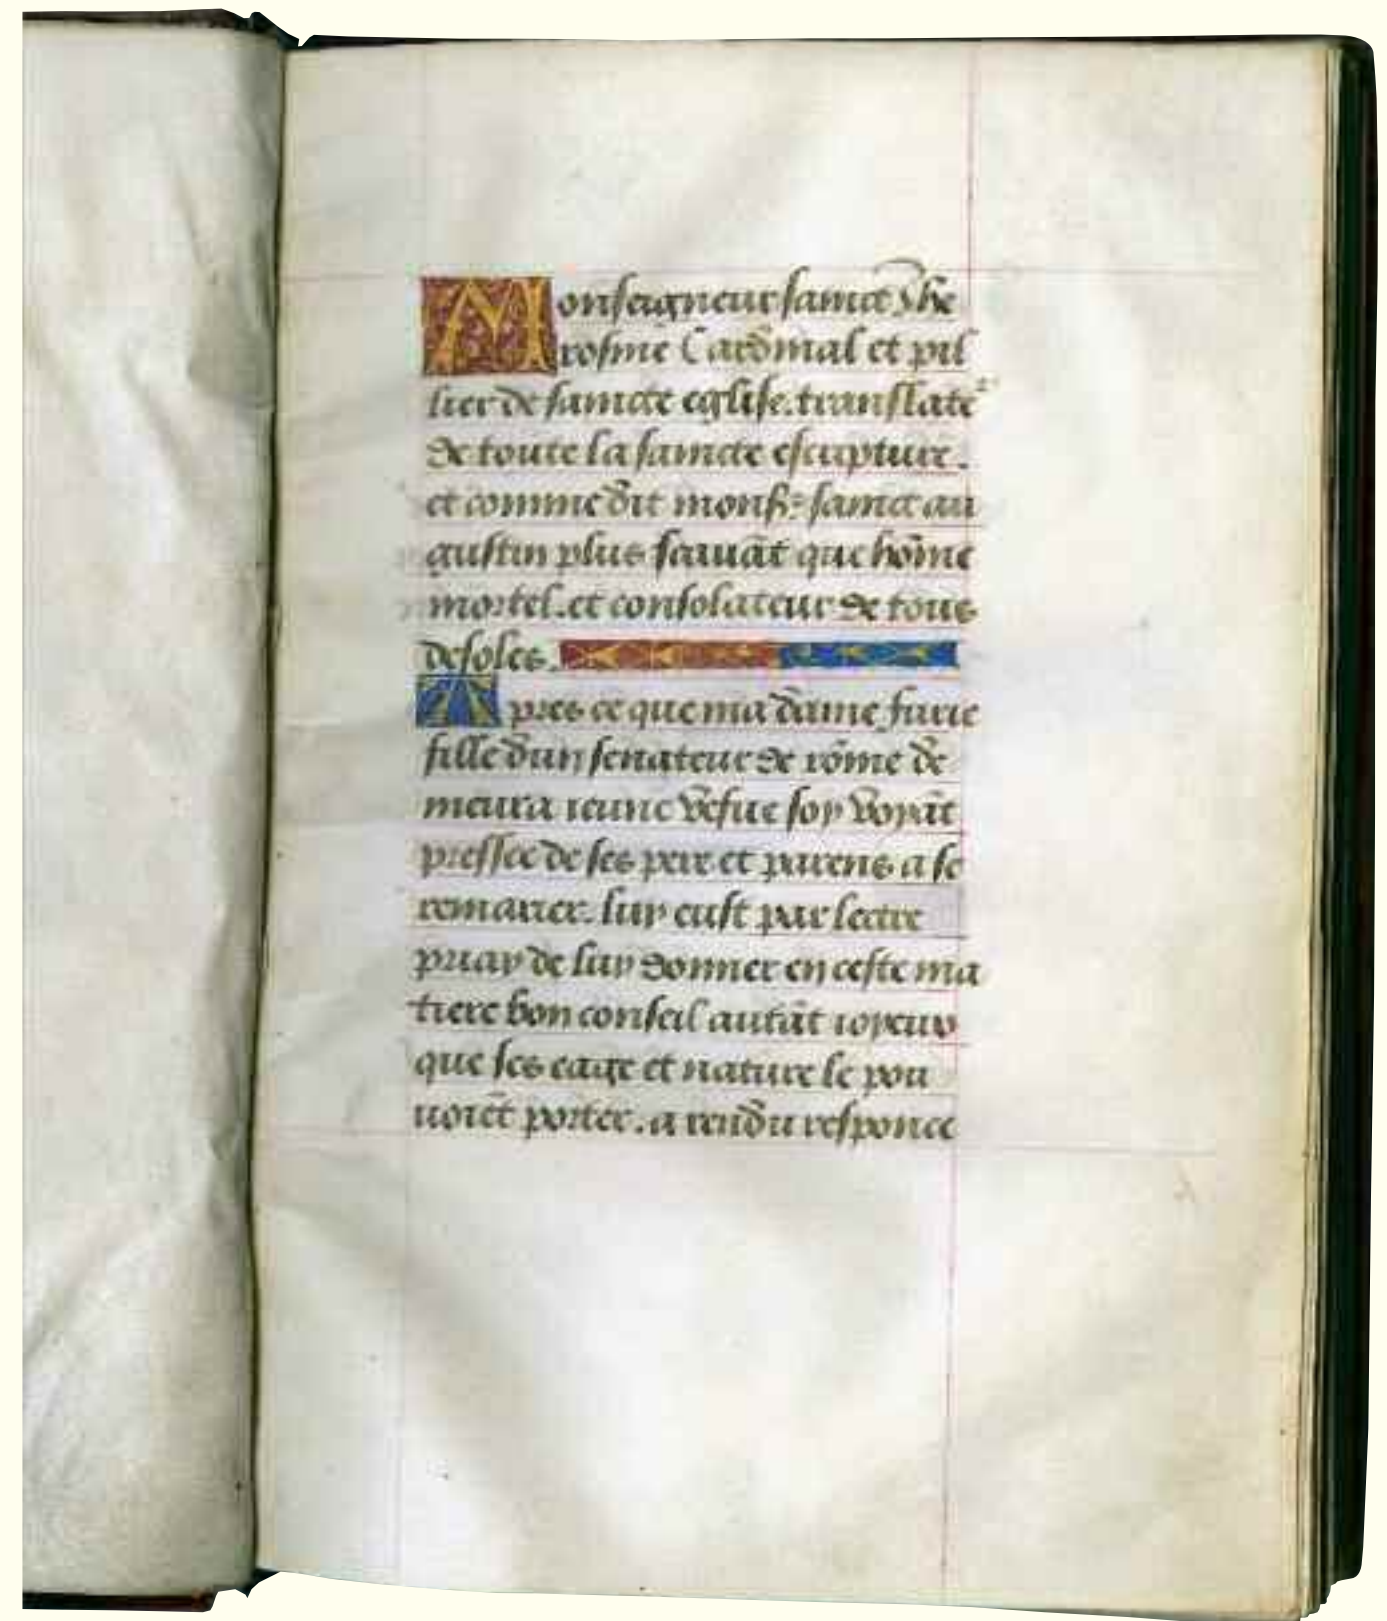 Monseigneur sainct Jhe
rosme Cardinal et pil
lier de saincte eglise. translate²
de toute la saincte escripture.
et comme dit mons̄ʳ sainct au
gustin plus sauuāt que hōme
mortel. et consolateur de tous
desoles.
Apres ce que ma dame furie
fille dun senateur de rōme de
meura ieune vefue soy voyāt
pressee de ses pere et parens a se
remarier. luy eust par lectre
priay de luy donner en ceste ma
tiere bon conseil autāt ioyeux
que ses eage et nature le pou
uoiēt porter. a rendu responce